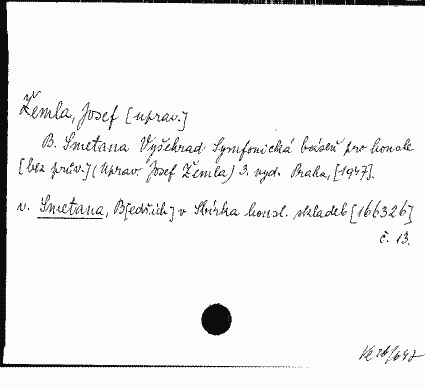 Žemla, Josef [uprav.]
B. Smetana Vyšehrad. Symfonická báseň pro housle
[bez prův.] (Uprav. Josef Žemla) 3. vyd. Praha, [1947].
v. Smetana, B[edřich] v Sbírka housl. skladeb [166326]
č. 13.